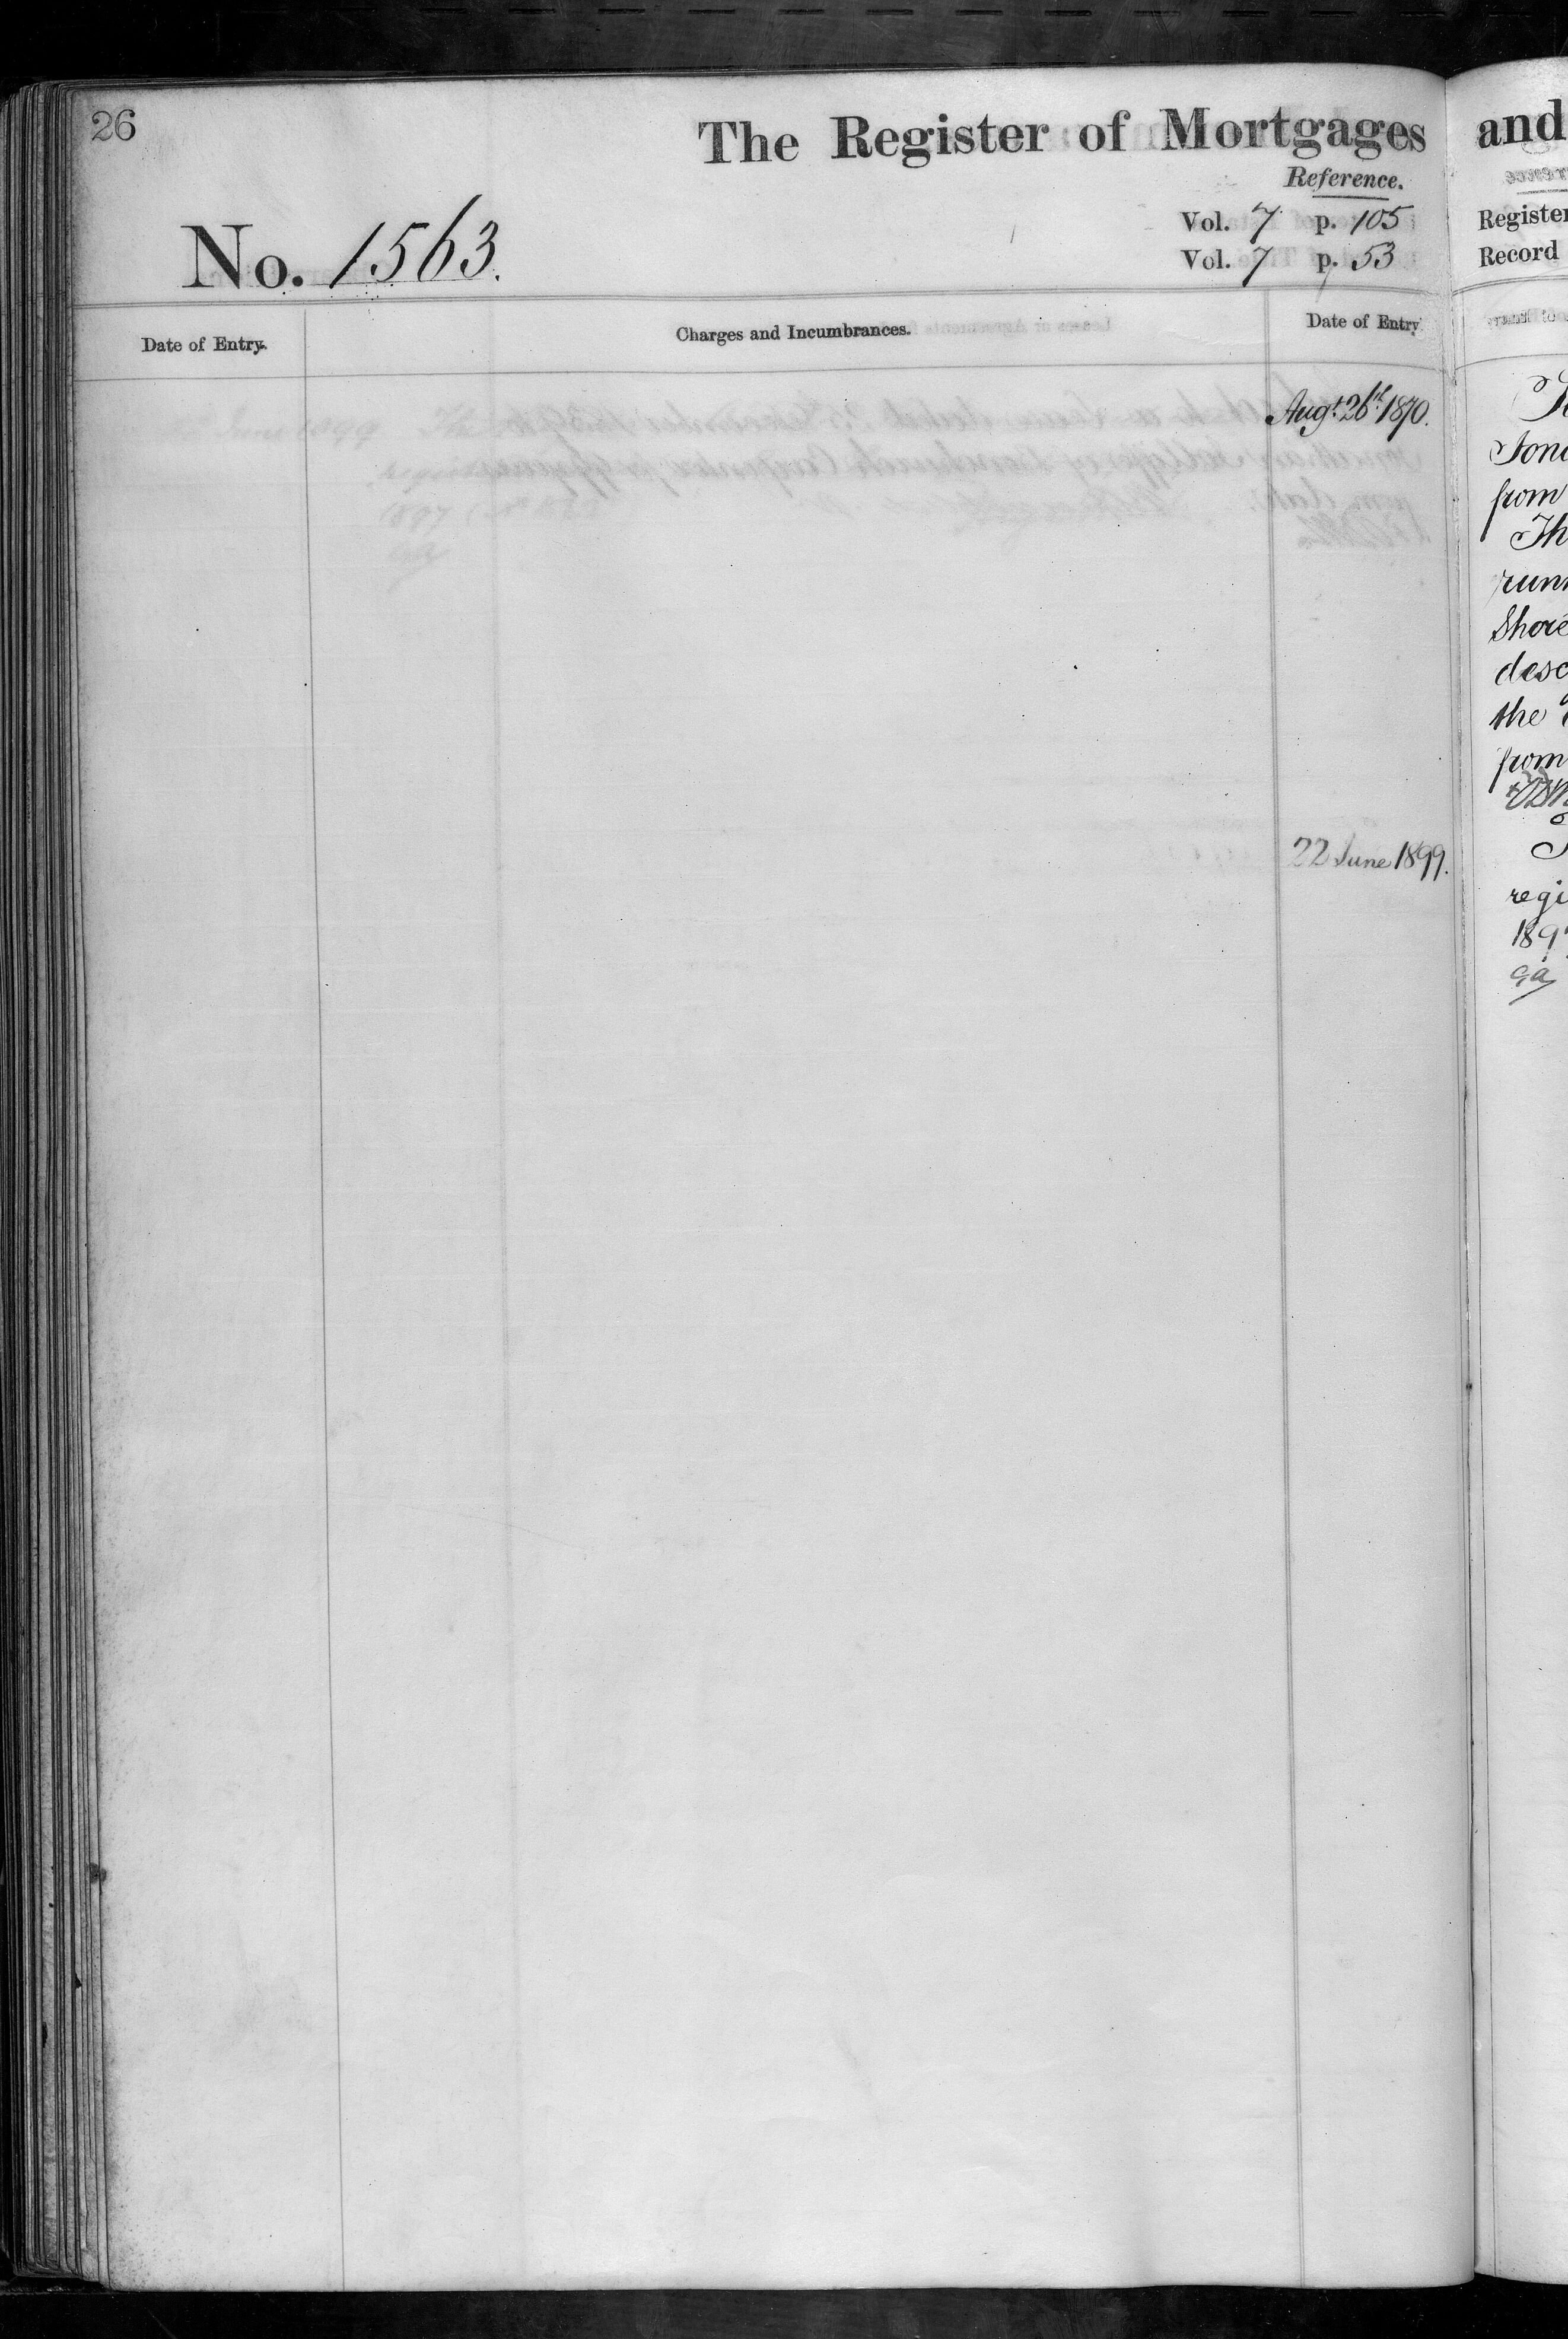 26
The Register of Mortgages
Reference.
No. 1563.
Vol. 7 p. 105
Vol. 7 p. 53
Date of Entry.
Charges and Incumbrances.
Date of Entry
Augt. 26th 1870.
22 June 1899.
and
Register
Record
from
Th
runn
Shore
desc
the
from
regi
189